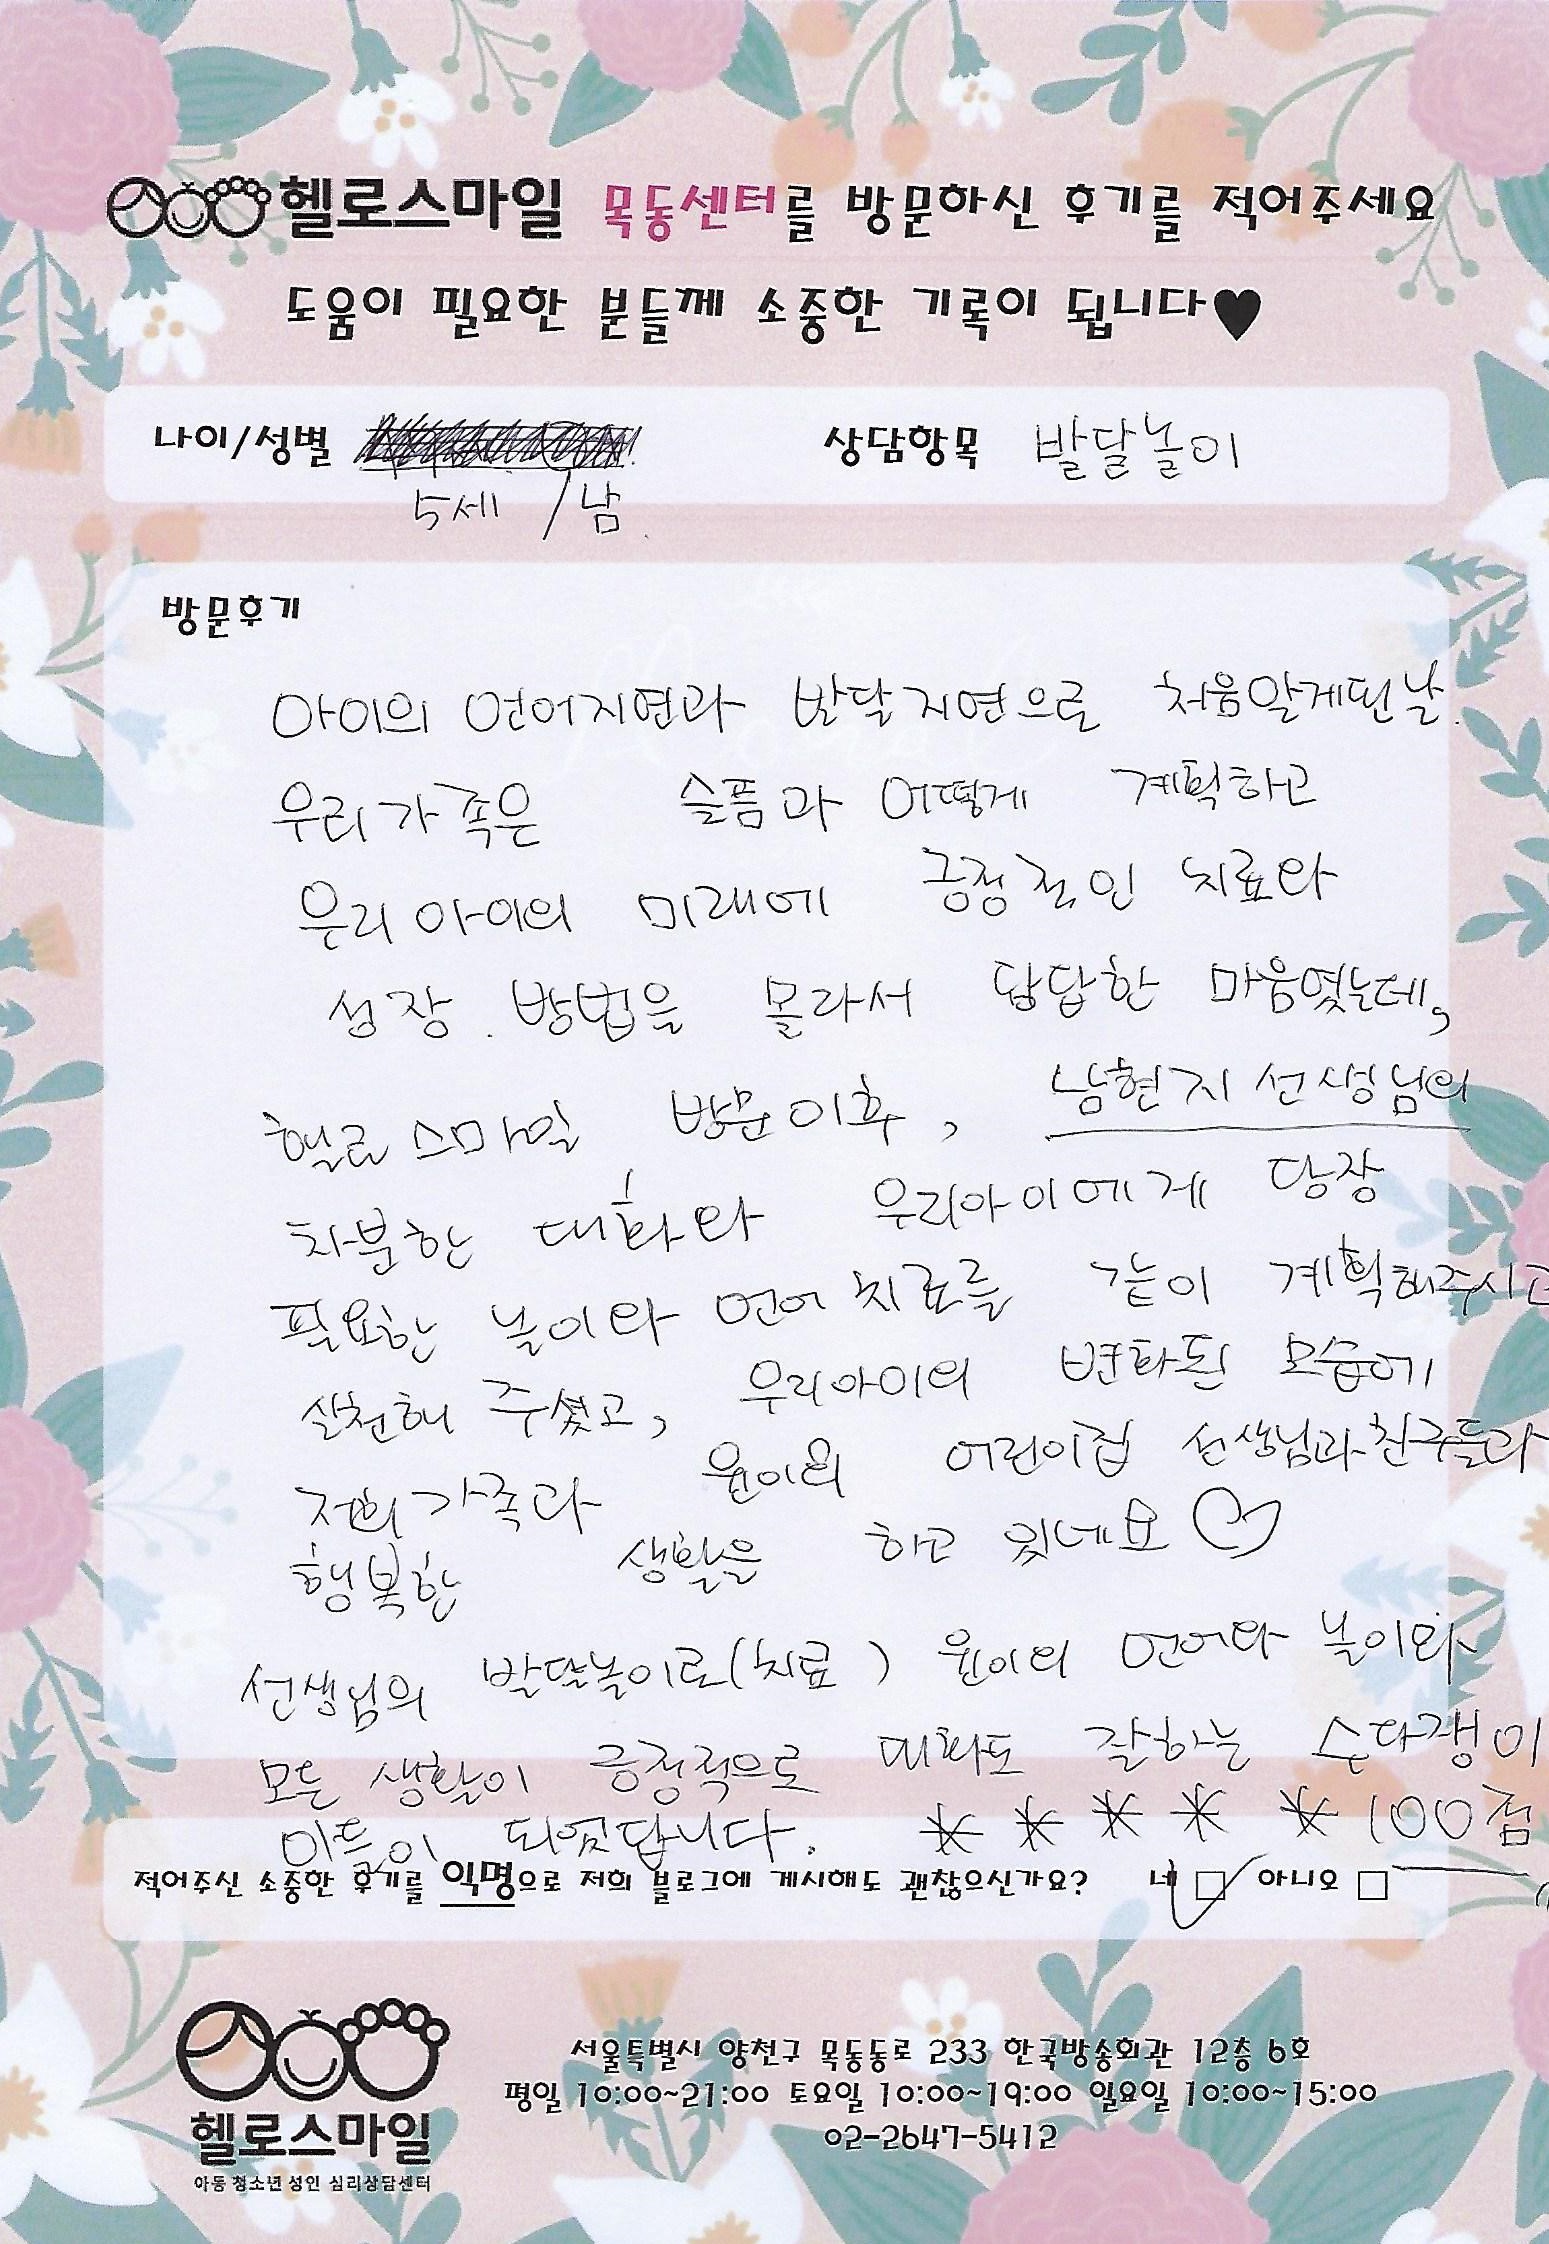 헬로스마일 목동센터를 방문하신 후기를 적어주세요
도움이 필요한 분들께 소중한 기록이 됩니다♥
나이/성별
5세 / 남
상담항목 발달놀이
방문후기
아이의 언어지연과 발달지연으로 처음알게된날.
우리가족은 슬픔과 어떻게 계획하고
우리아이의 미래에 긍정적인 치료와
성장. 방법을 몰라서 답답한 마음였는데,
헬로스마일 방문이후, 남현지선생님의
차분한 대화와 우리아이에게 당장
필요한 놀이와 언어치료를 같이 계획해주시고
실천해 주셨고, 우리아이의 변화된 모습에
저희가족과 윤이의 어린이집 선생님과친구들과
행복한 생활을 하고 있네요♡
선생님의 발달놀이로(치료) 윤이의 언어와 놀이와
모든 생활이 긍정적으로 대화도 잘하는 수다쟁이
아들이 되었답니다. ＊＊＊＊＊ 100점
적어주신 소중한 후기를 익명으로 저희 블로그에 게시해도 괜찮으신가요? 네 ☑ 아니오 □
헬로스마일
아동 청소년 성인 심리상담센터
서울특별시 양천구 목동동로 233 한국방송회관 12층 6호
평일 10:00~21:00 토요일 10:00~19:00 일요일 10:00~15:00
02-2647-5412